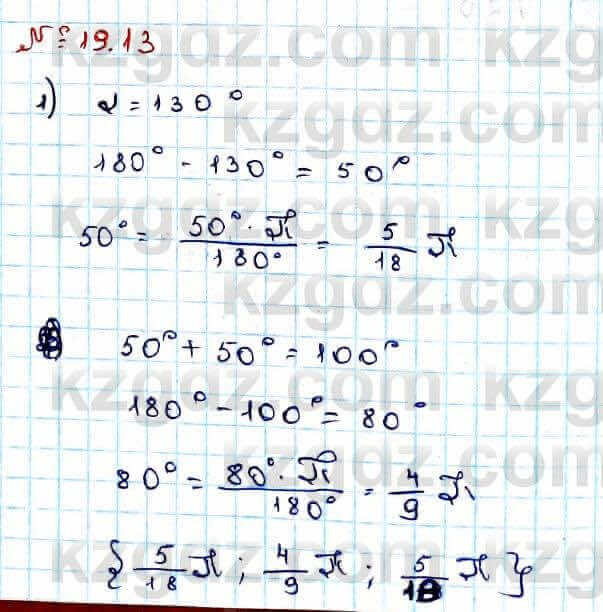 № 19.13
1) α = 130°
180° - 130° = 50°
50° = 50° · π / 180° = 5/18 π
50° + 50° = 100°
180° - 100° = 80°
80° = 80° · π / 180° = 4/9 π
{ 5/18 π ; 4/9 π ; 5/18 π }
kzgdz.com